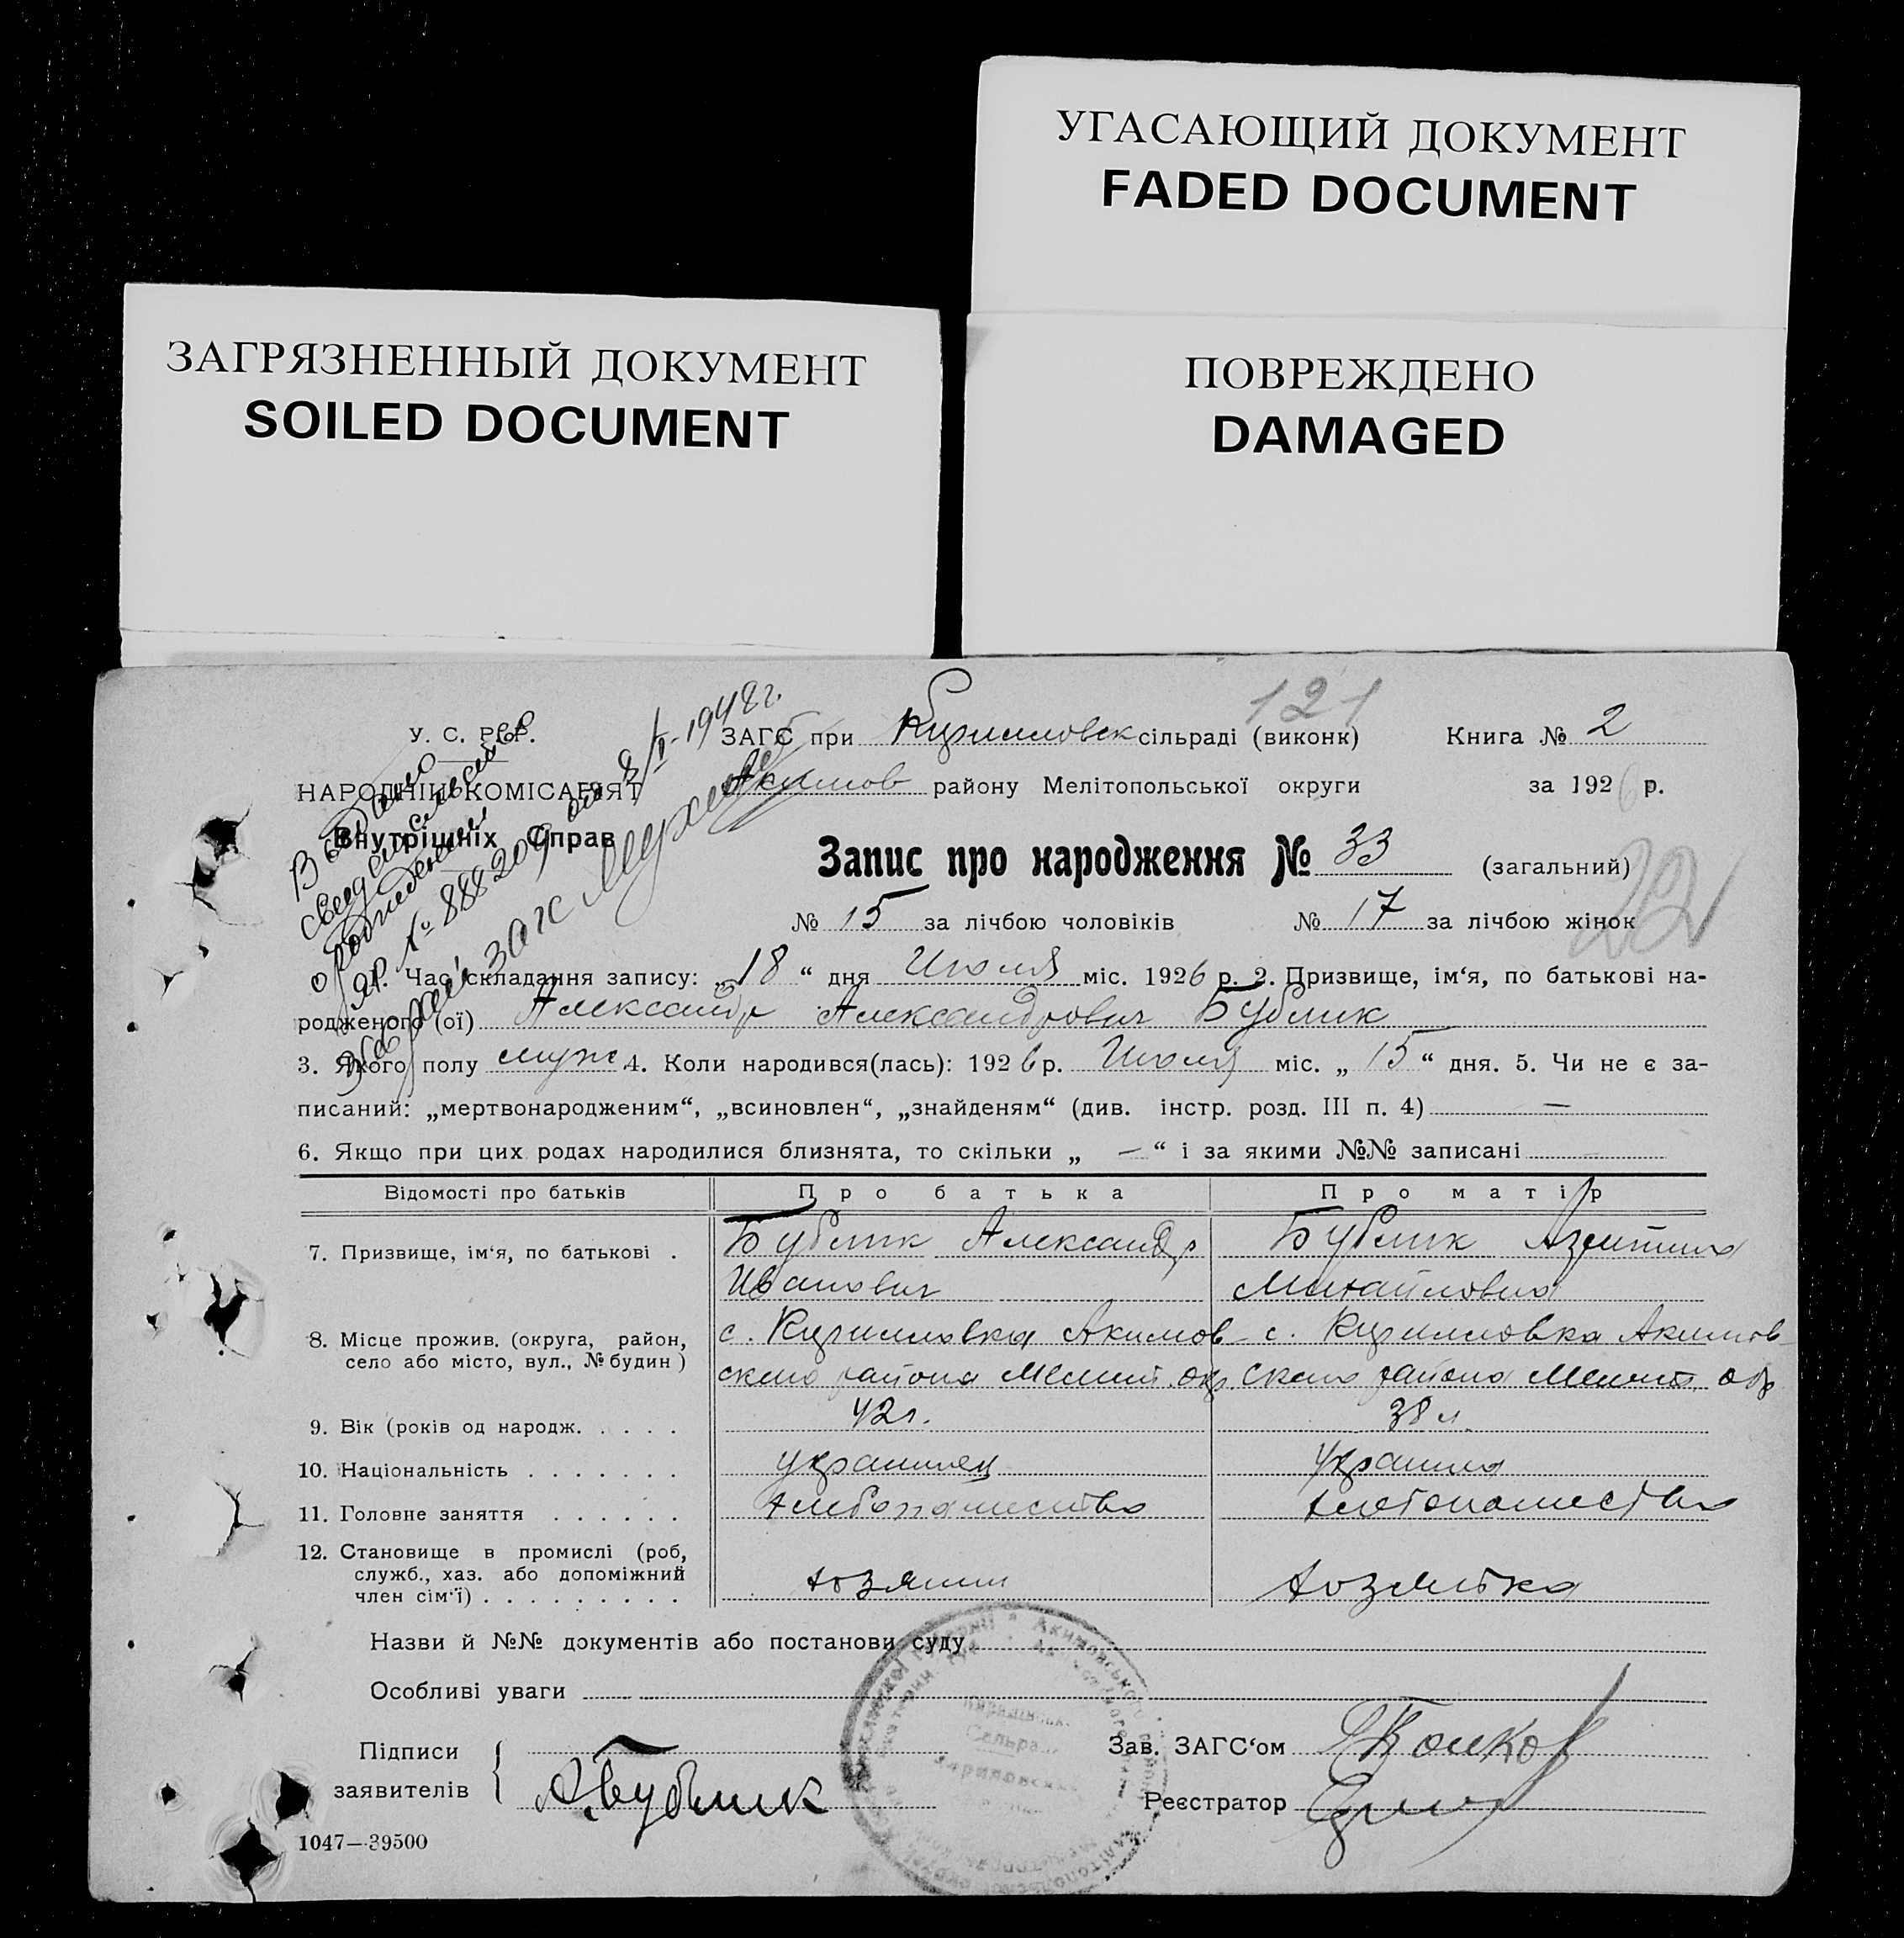 УГАСАЮЩИЙ ДОКУМЕНТ
FADED DOCUMENT
ЗАГРЯЗНЕННЫЙ ДОКУМЕНТ
SOILED DOCUMENT
ПОВРЕЖДЕНО
DAMAGED
121
У. С. Р.Р.
НАРОДНІЙ КОМІСАРІЯТ
Внутрішніх Справ
Выдано
свидетельство
о рождении
№ 888209 от 8/I-1948 г.
ЗАГС при Кирилловск сільраді (виконк) Книга № 2
Акимов району Мелітопольської округи за 1926 р.
Запис про народження № 33 (загальний)
№ 15 за лічбою чоловіків № 17 за лічбою жінок
22
Час складання запису: „18“ дня Июля міс. 1926 р. 2. Призвище, ім‘я, по батькові на-
родженого (ої) Александр Александрович Бублик
3. Якого полу муж 4. Коли народився(лась): 1926 р. Июля міс. „15“ дня. 5. Чи не є за-
писаний: „мертвонародженим“, „всиновлен“, „знайденям“ (див. інстр. розд. III п. 4) —
6. Якщо при цих родах народилися близнята, то скільки „ — “ і за якими №№ записані
Відомості про батьків Про батька Про матір
7. Призвище, ім‘я, по батькові . Бублик Александр Бублик
Иванович Михайловна
8. Місце прожив. (округа, район, с. Кирилловка Акимов- с. Кирилловка Акимов-
село або місто, вул., № будин) ского района Мелит. окр. ского района Мелит. окр
9. Вік (років од народж. . . . . 42 л. 38 л.
10. Національність . . . . . . . украинец украинка
11. Головне заняття . . . . . . хлебопашество хлебопашество
12. Становище в промислі (роб,
служб., хаз. або допоміжний
член сім‘ї) . . . . . . . . . хозяин хозяйка
Назви й №№ документів або постанови суду
Особливі уваги
Підписи
заявителів А. Бублик
Зав. ЗАГС‘ом
Реєстратор
1047—39500